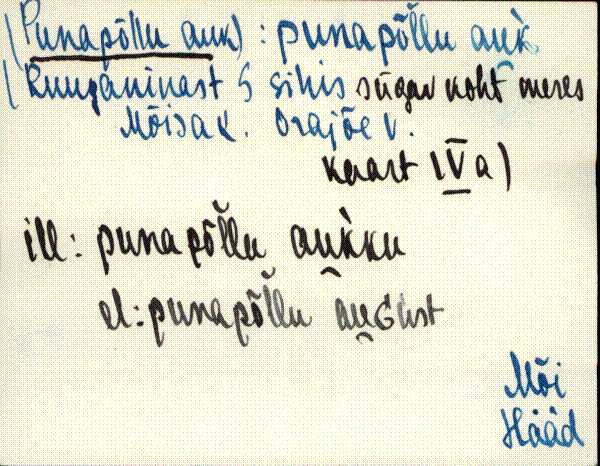 (Punapõllu auk) : punapõ̆llu auk
(Runganinast S sihis sügav koht meres
Mõisak. Orajõe v.
kaart IVa)
ill: punapõ̆llu au̯kku
el: punapõ̆llu au̯Gust
Mõi
Hääd